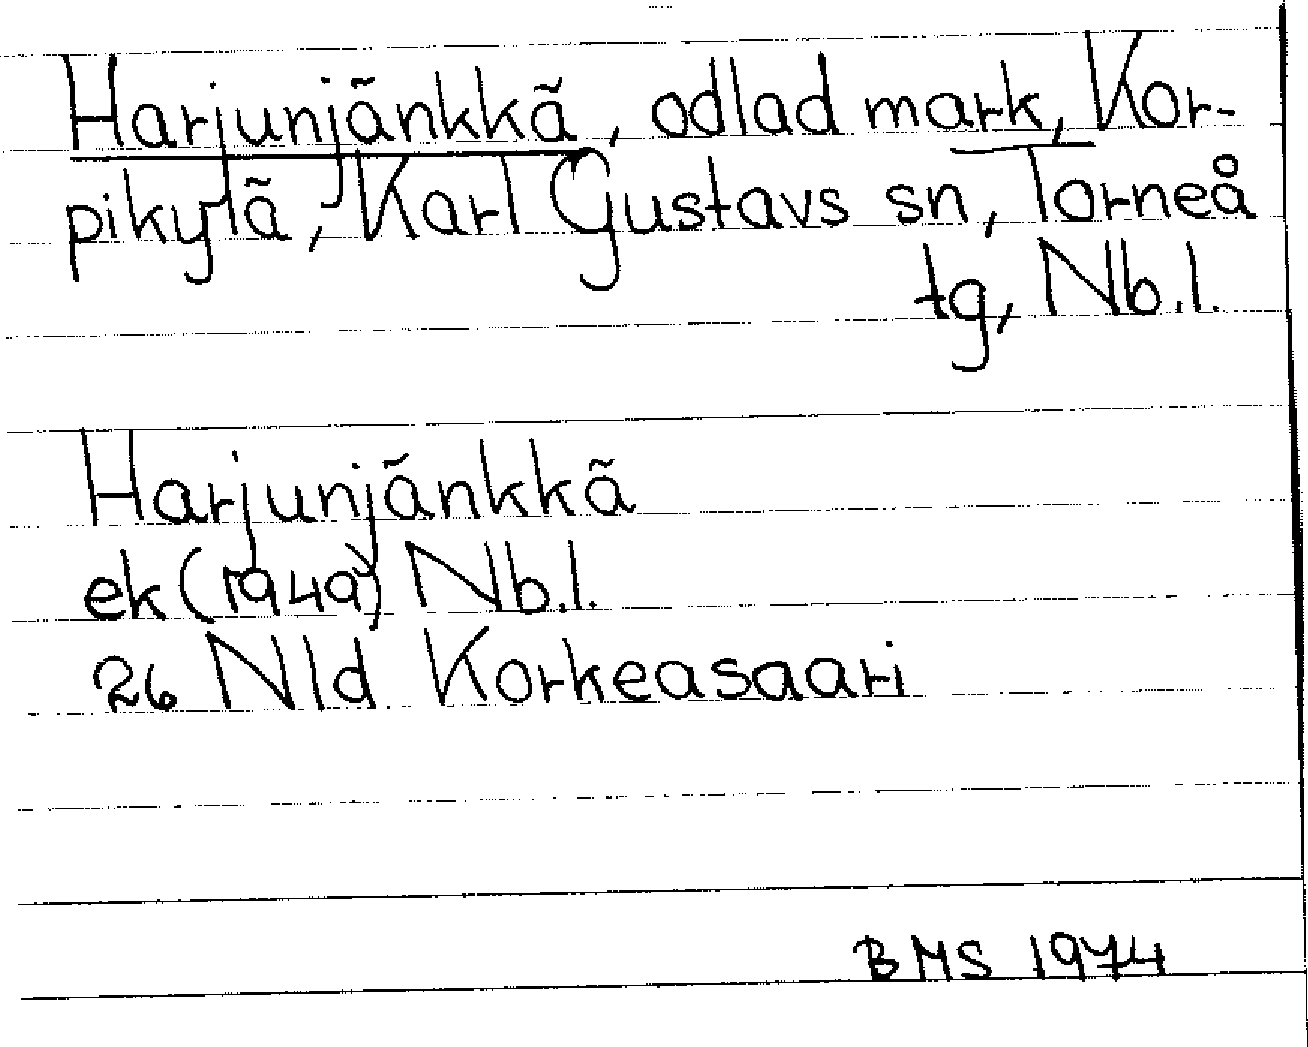 Harjunjänkkä, odlad mark, Kor-
pikylä, Karl Gustavs sn, Torneå
tg, Nb.l.
Harjunjänkkä
ek (1949) Nb.l.
26 Nld Korkeasaari
BMS 1974